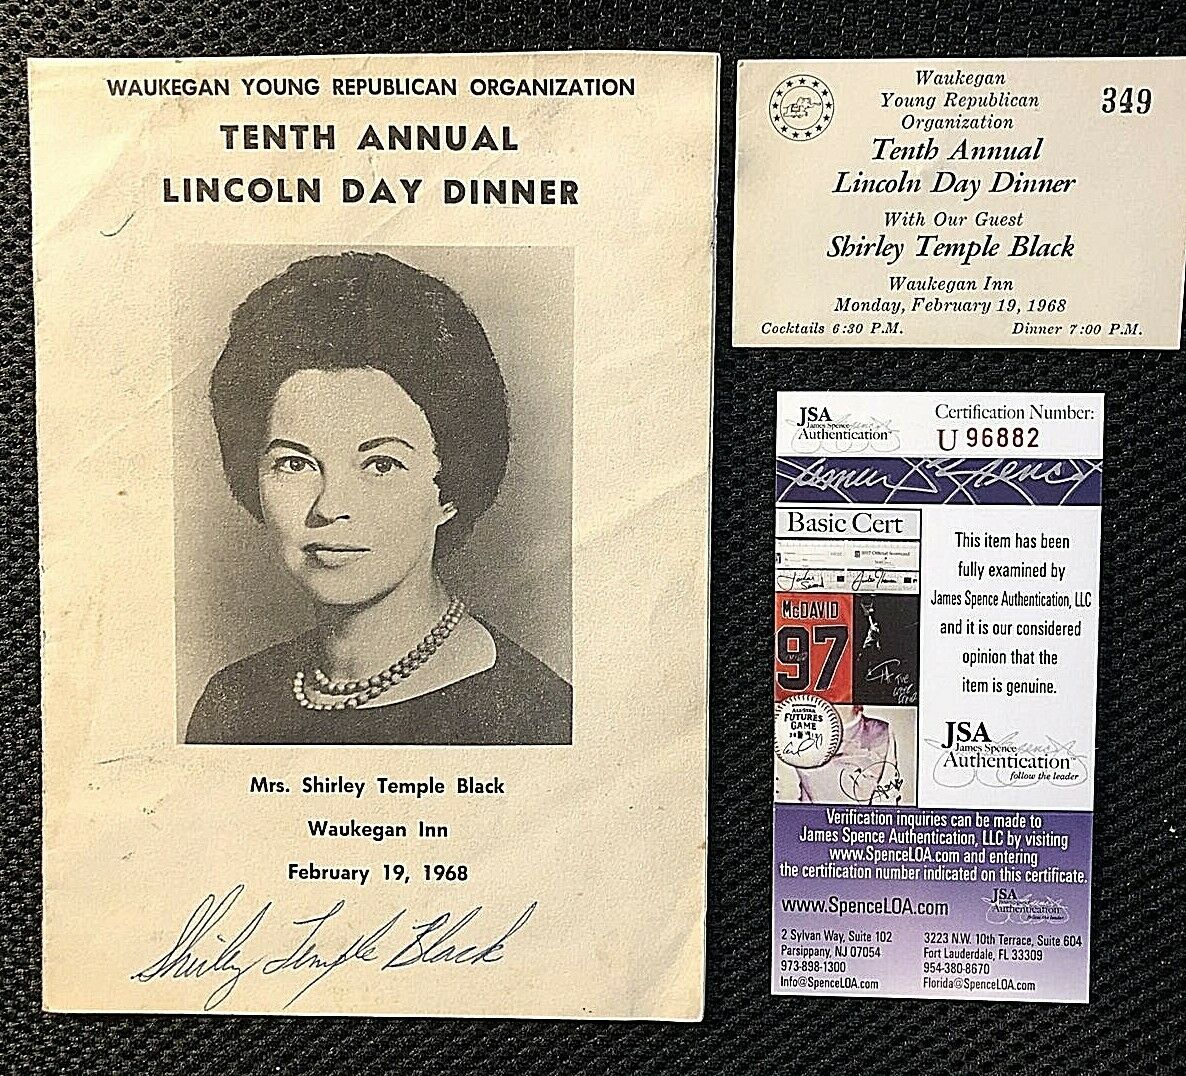 WAUKEGAN YOUNG REPUBLICAN ORGANIZATION
TENTH ANNUAL
LINCOLN DAY DINNER
Mrs. Shirley Temple Black
Waukegan Inn
February 19, 1968
Shirley Temple Black
Waukegan
Young Republican
Organization
349
Tenth Annual
Lincoln Day Dinner
With Our Guest
Shirley Temple Black
Waukegan Inn
Monday, February 19, 1968
Cocktails 6:30 P.M. Dinner 7:00 P.M.
JSA
James Spence
Authentication
Certification Number:
U 96882
James Spence
Basic Cert
McDAVID
97
FUTURES
GAME
This item has been
fully examined by
James Spence Authentication, LLC
and it is our considered
opinion that the
item is genuine.
JSA
James Spence
Authentication
follow the leader
Verification inquiries can be made to
James Spence Authentication, LLC by visiting
www.SpenceLOA.com and entering
the certification number indicated on this certificate.
www.SpenceLOA.com
JSA
Authentication
follow the leader
2 Sylvan Way, Suite 102
Parsippany, NJ 07054
973-898-1300
Info@SpenceLOA.com
3223 N.W. 10th Terrace, Suite 604
Fort Lauderdale, FL 33309
954-380-8670
Florida@SpenceLOA.com